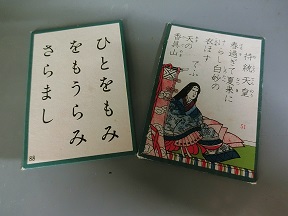 ひとをもみ
をもうらみ
さらまし
持統天皇
春過ぎて夏来に
けらし白妙の
衣ほす てふ
天の
香具山